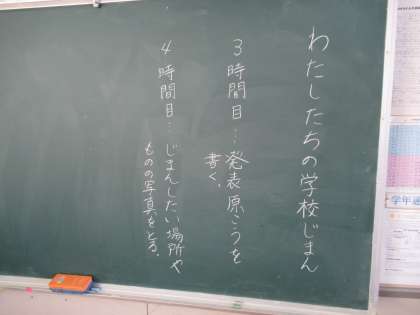 わたしたちの学校じまん
3時間目…発表原こうを
書く。
4時間目…じまんしたい場所や
ものの写真をとる。
学年通